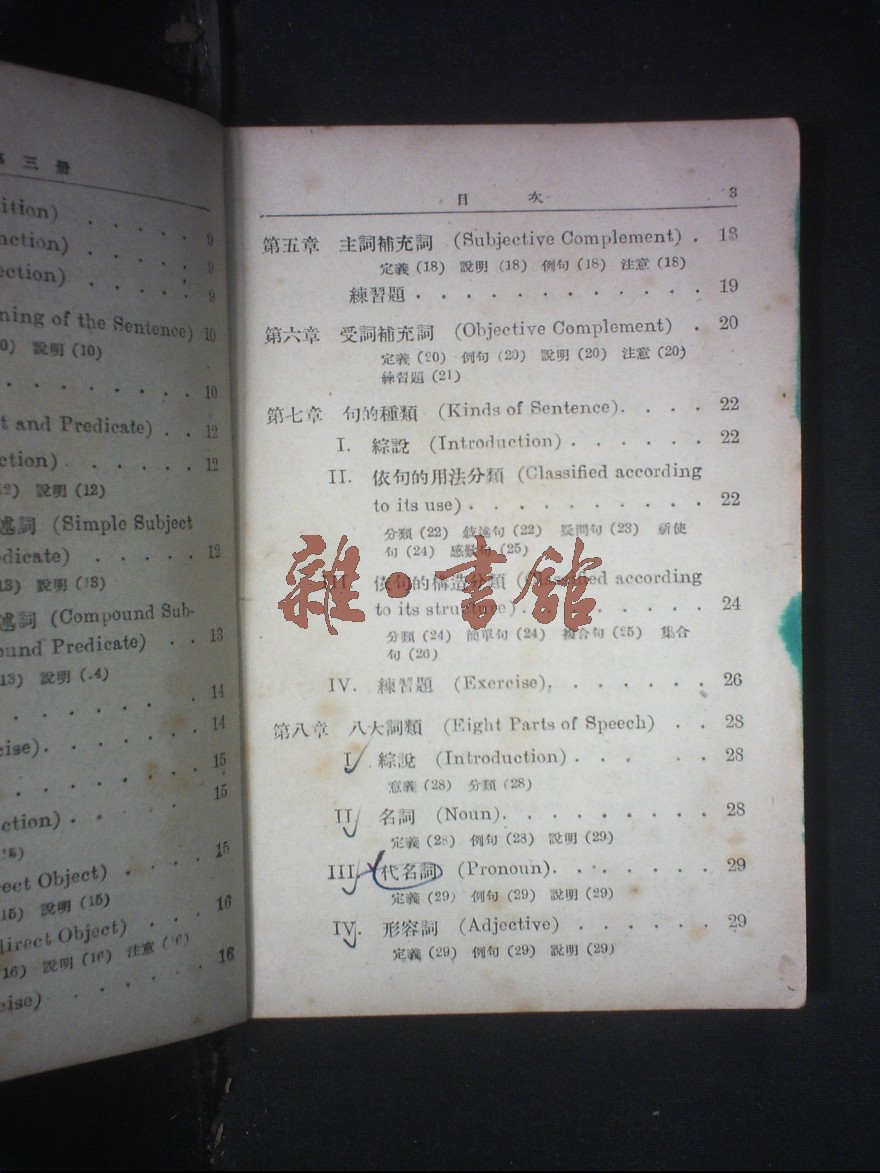 三 册
ition)
. . . . . 9
nction)
. . . . 9
ection)
. . . . 9
ning of the Sentence) 10
0) 說明 (10)
. . . . . 10
t and Predicate) . . 12
ction) . . . . . . 12
12) 說明 (12)
述詞 (Simple Subject
edicate) . . . . . 12
13) 說明 (13)
述詞 (Compound Sub-
ound Predicate) . . 13
13) 說明 (14)
. . . . . . 14
cise). . . . . . . 14
. . . . . . 15
. . . . . . 15
ction) . . . . . .
15)
rect Object) . . . . 15
15) 說明 (15)
direct Object) . . . 16
16) 說明 (16) 注意 (16)
cise) . . . . . . 16
目 次 3
第五章 主詞補充詞 (Subjective Complement) . 18
定義 (18) 說明 (18) 例句 (18) 注意 (18)
練習題 . . . . . . . . . . . . 19
第六章 受詞補充詞 (Objective Complement) . 20
定義 (20) 例句 (20) 說明 (20) 注意 (20)
練習題 (21)
第七章 句的種類 (Kinds of Sentence). . . . 22
I. 綜說 (Introduction) . . . . . . 22
II. 依句的用法分類 (Classified according
to its use) . . . . . . . . . . 22
分類 (22) 敍述句 (22) 疑問句 (23) 祈使
句 (24) 感歎句 (25)
III. 依句的構造分類 (Classified according
to its structure) . . . . . . . . 24
分類 (24) 簡單句 (24) 複合句 (25) 集合
句 (26)
IV. 練習題 (Exercise). . . . . . . 26
第八章 八大詞類 (Eight Parts of Speech) . . 28
I. 綜說 (Introduction) . . . . . . 28
意義 (28) 分類 (28)
II. 名詞 (Noun). . . . . . . . . 28
定義 (28) 例句 (28) 說明 (29)
III. 代名詞 (Pronoun). . . . . . . 29
定義 (29) 例句 (29) 說明 (29)
IV. 形容詞 (Adjective) . . . . . . 29
定義 (29) 例句 (29) 說明 (29)
雜·書館